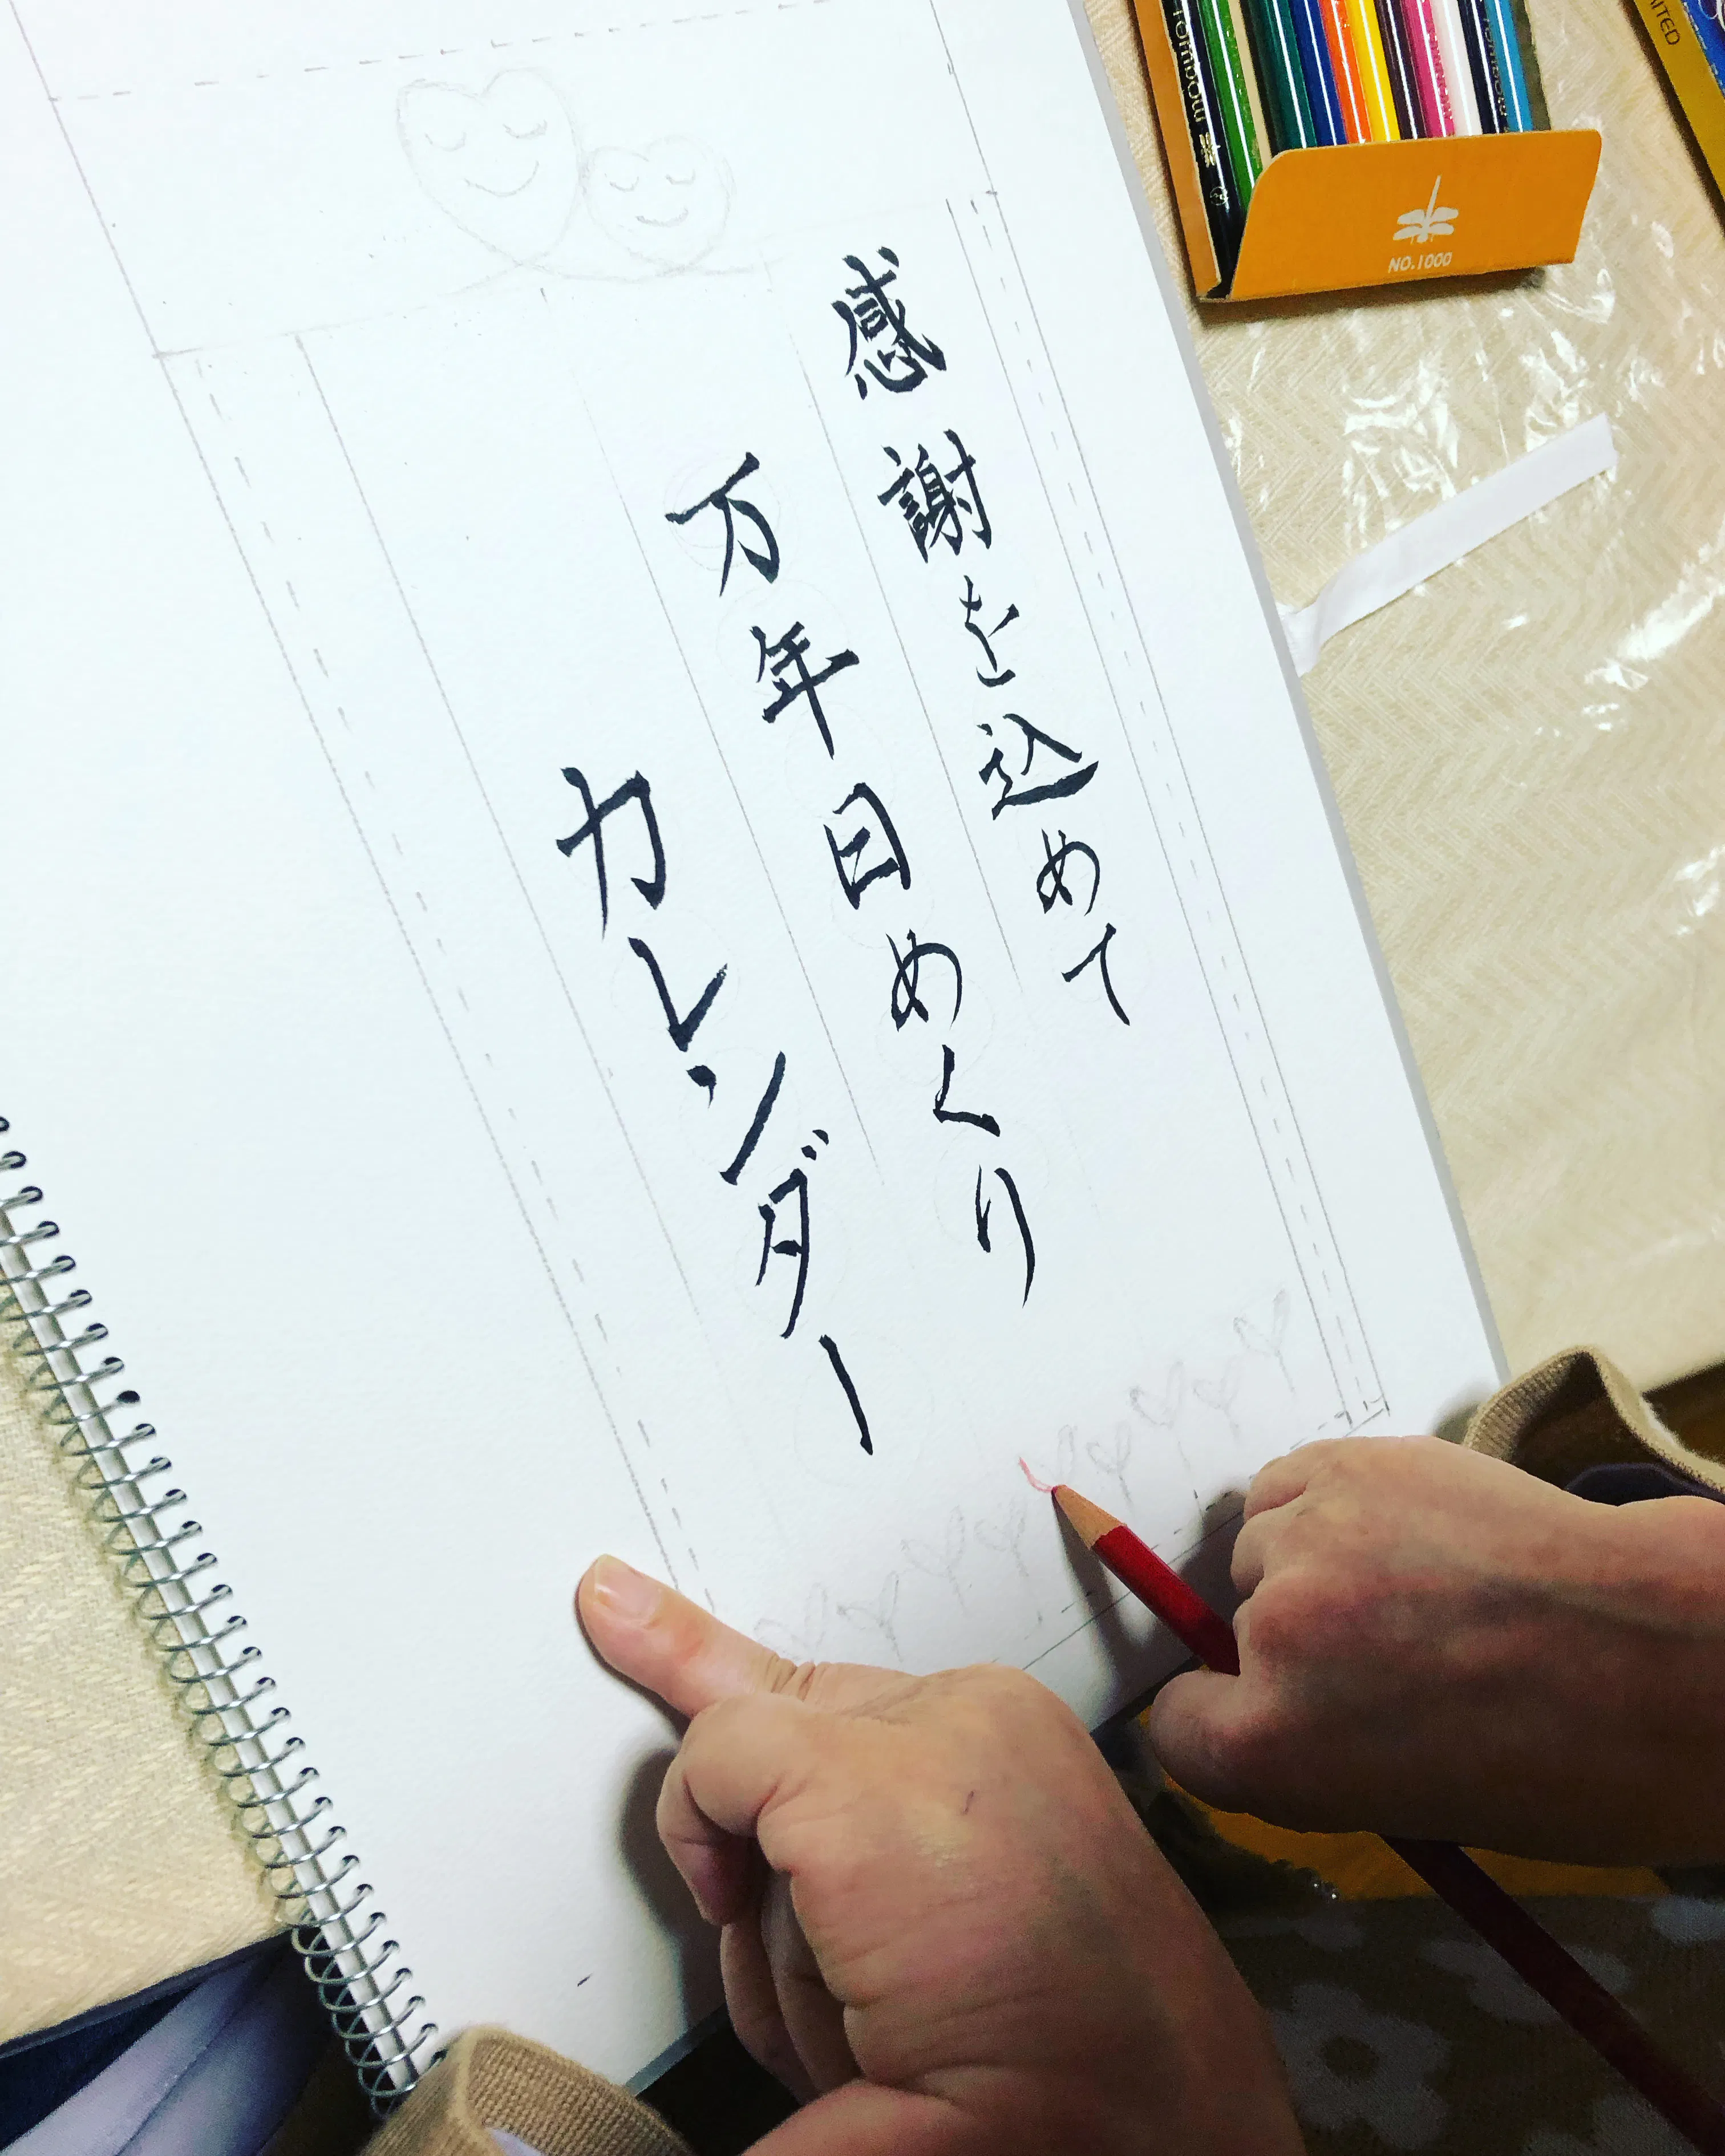 感謝を込めて
万年日めくり
カレンダー
Tombow
NO.1000